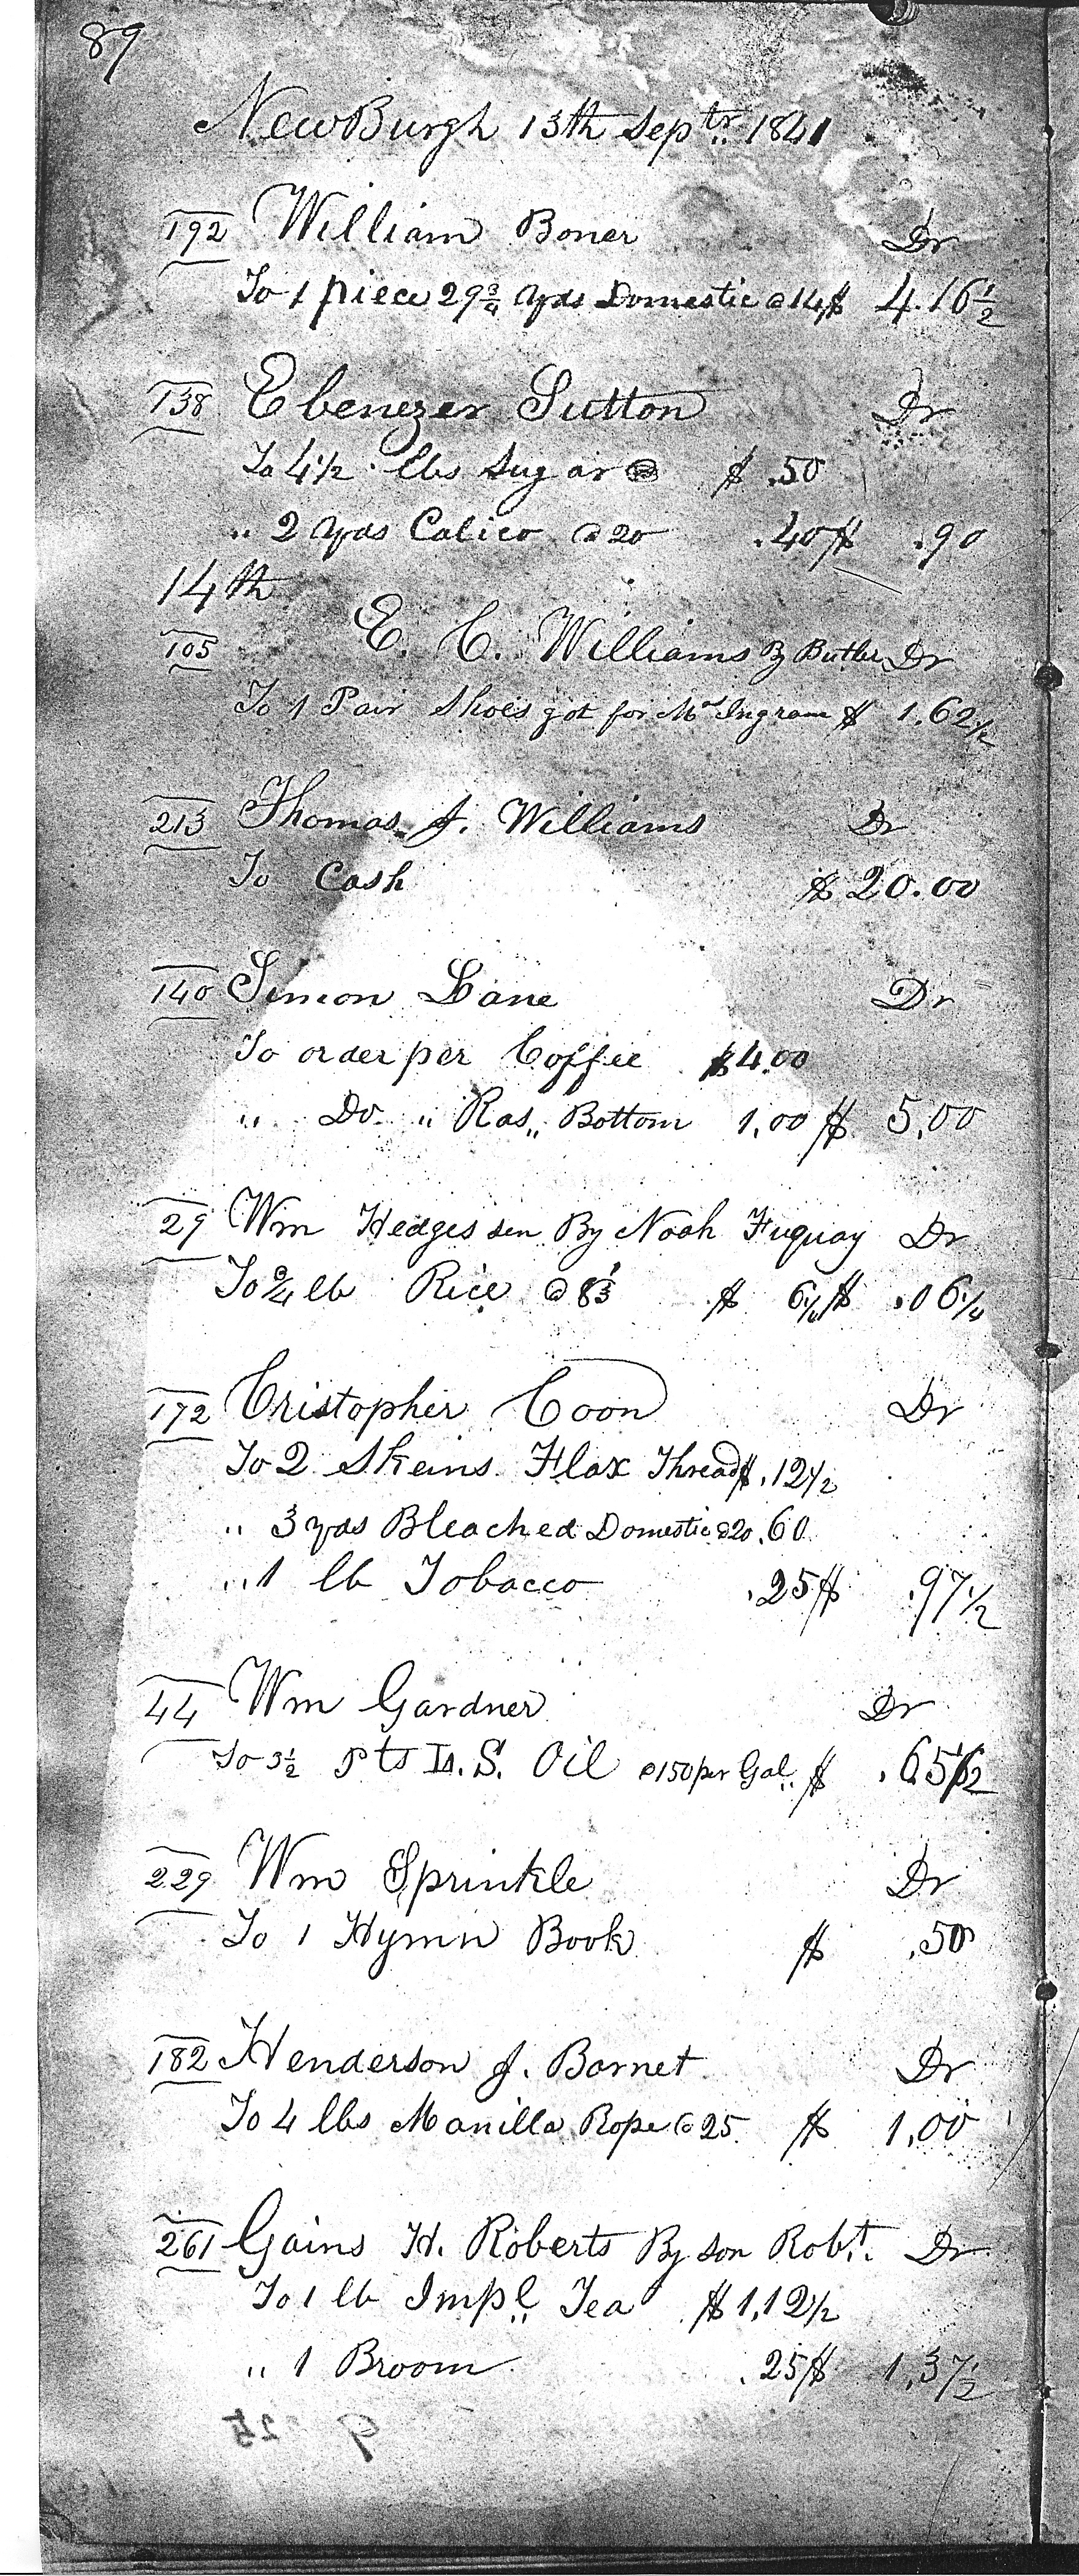 89
NewBurgh 13th Septr. 1841
192 William Boner Dr
To 1 piece 29 3/4 yds Domestic @ 14 $ 4.16 1/2
138 Ebenezer Sutton Dr
To 4 1/2 lbs Sugar @ $ .50
" 2 yds Calico @ 20 .40 $ .90
14th
105 E. C. Williams By Butler Dr
To 1 Pair Shoes got for Mr Ingram $ 1.62 1/2
213 Thomas J. Williams Dr
To Cash $ 20.00
140 Simon Lane Dr
To order per Coffee $4.00
" Do. " Ras,, Bottom 1.00 $ 5.00
29 Wm Hedges sen By Noah Fuquay Dr
To 3/4 lb Rice @ 8 1/3 $ 6 1/4 $ .06 1/4
172 Cristopher Coon Dr
To 2 Skeins Flax Thread $ .12 1/2
" 3 yds Bleached Domestic @ 20 .60
" 1 lb Tobacco .25 $ .97 1/2
44 Wm Gardner Dr
To 3 1/2 pts L. S. Oil @ 150 per Gal. $ .65 1/2
229 Wm Sprinkle Dr
To 1 Hymn Book $ .50
182 Henderson J. Barnet Dr
To 4 lbs Manilla Rope @ 25 $ 1.00
261 Gains H. Roberts By son Robt. Dr
To 1 lb Impl. Tea $ 1,12 1/2
" 1 Broom .25 $ 1,37 1/2